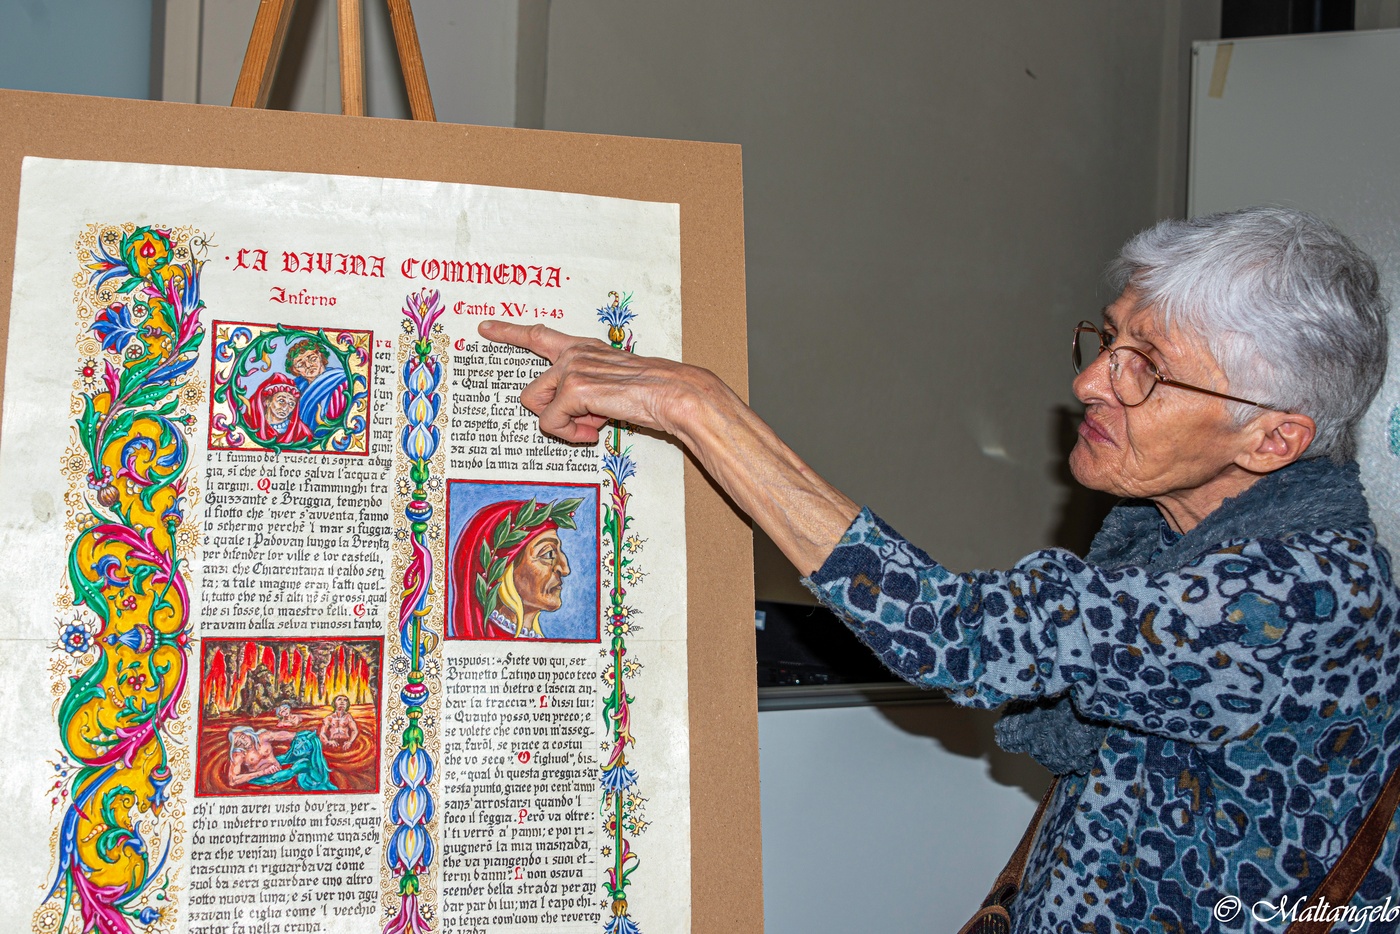 ·LA DIVINA COMMEDIA·
Inferno
Canto XV· 1÷43
ra
cen
por-
ta
l'un
de'
duri
mar
gini;
e 'l fummo del ruscel di sopra adug
gia, sì che dal foco salva l'acqua e
li argini. Quale i Fiamminghi tra
Guizzante e Bruggia, temendo
il fiotto che 'nver s'avventa, fanno
lo schermo perchè 'l mar si fuggia;
e quale i Padovan lungo la Brenta,
per difender lor ville e lor castelli,
anzi che Chiarentana il caldo sen
ta; a tale imagine eran fatti quel-
li, tutto che nè sì alti nè sì grossi, qual
che si fosse, lo maestro felli. Già
eravam dalla selva rimossi tanto,
ch'i' non avrei visto dov'era, per-
ch'io indietro rivolto mi fossi, quan
do incontrammo d'anime una schi
era che venian lungo l'argine, e
ciascuna ci riguardava come
suol da sera guardare uno altro
sotto nuova luna; e sì ver noi agu
zzavan le ciglia come 'l vecchio
sartor fa nella cruna.
Così adocchiato
miglia, fui conosciu
mi prese per lo lem
« Qual marav
quando 'l suo
distese, ficca' li
to aspetto, sì che
ciato non difese la con
za sua al mio intelletto; e chi-
nando la mia alla sua faccia,
rispuosi: «Siete voi qui, ser
Brunetto Latino un poco teco
ritorna in dietro e lascia an-
dar la traccia». I' dissi lui:
« Quanto posso, ven preco; e
se volete che con voi m'asseg-
gia, faròl, se piace a costui
che vo seco». «O figliuol», dis-
se, «qual di questa greggia s'ar
resta punto, giace poi cent'anni
sanz'arrostarsi quando 'l
foco il feggia. Però va oltre:
i' ti verrò a' panni; e poi ri-
giugnerò la mia masnada,
che va piangendo i suoi et-
terni danni». I' non osava
scender della strada per an
dar par di lui; ma 'l capo chi-
no tenea com'uom che reveren
te vada.
© Maltangelo